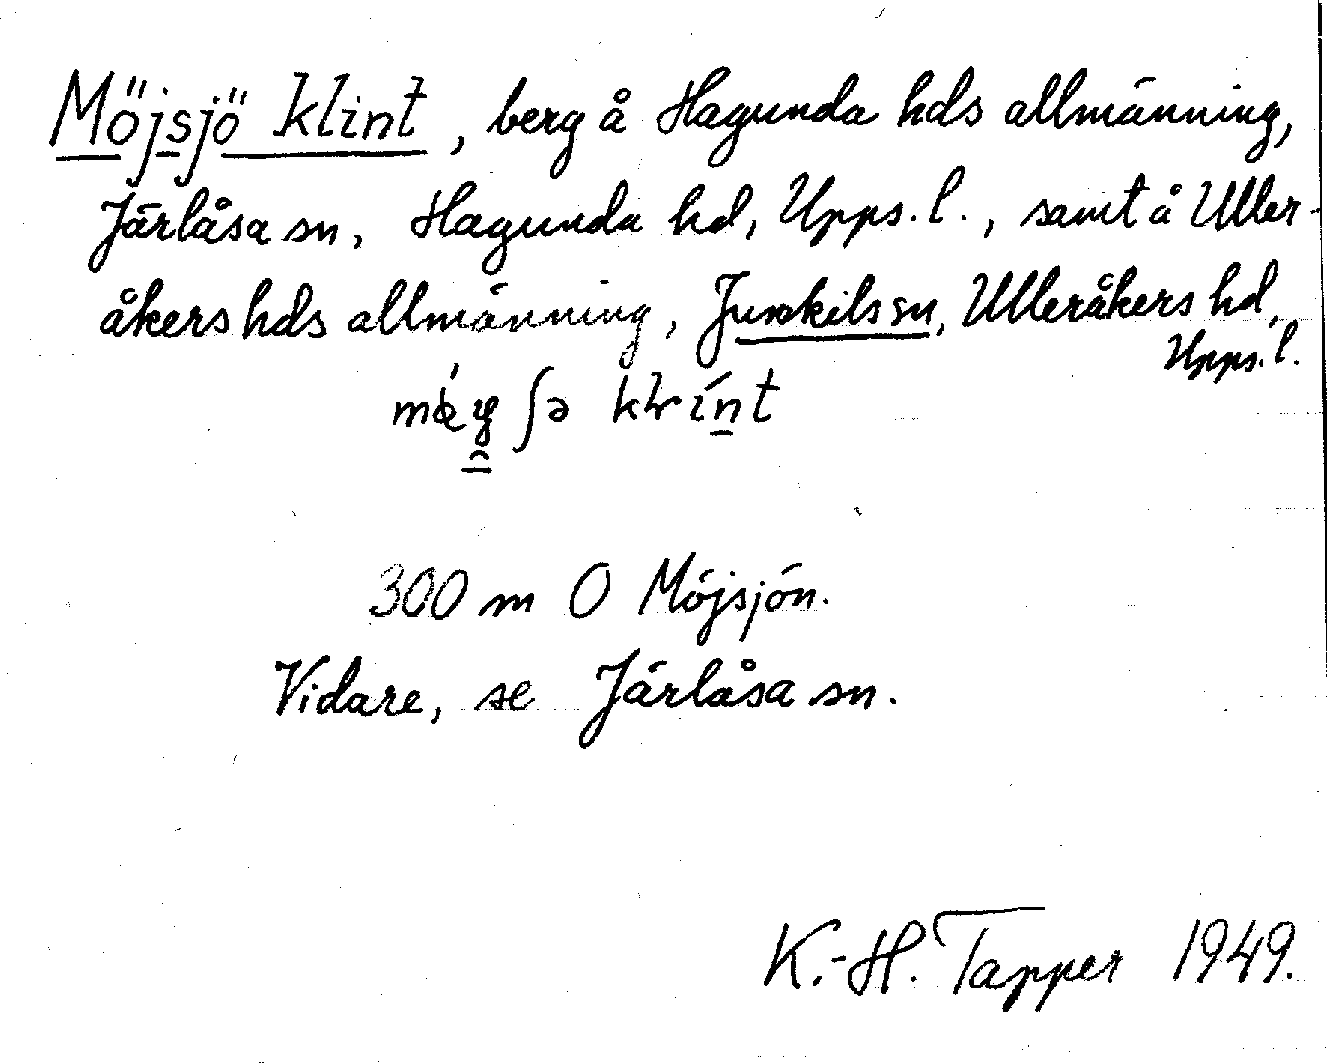 Möjsjö klint, berg å Hagunda hds allmänning,
Järlåsa sn, Hagunda hd, Upps. l., samt å Uller-
åkers hds allmänning, Jumkils sn, Ulleråkers hd,
Upps. l.
300 m O Möjsjön.
Vidare, se Järlåsa sn.
K.-H. Tapper 1949.